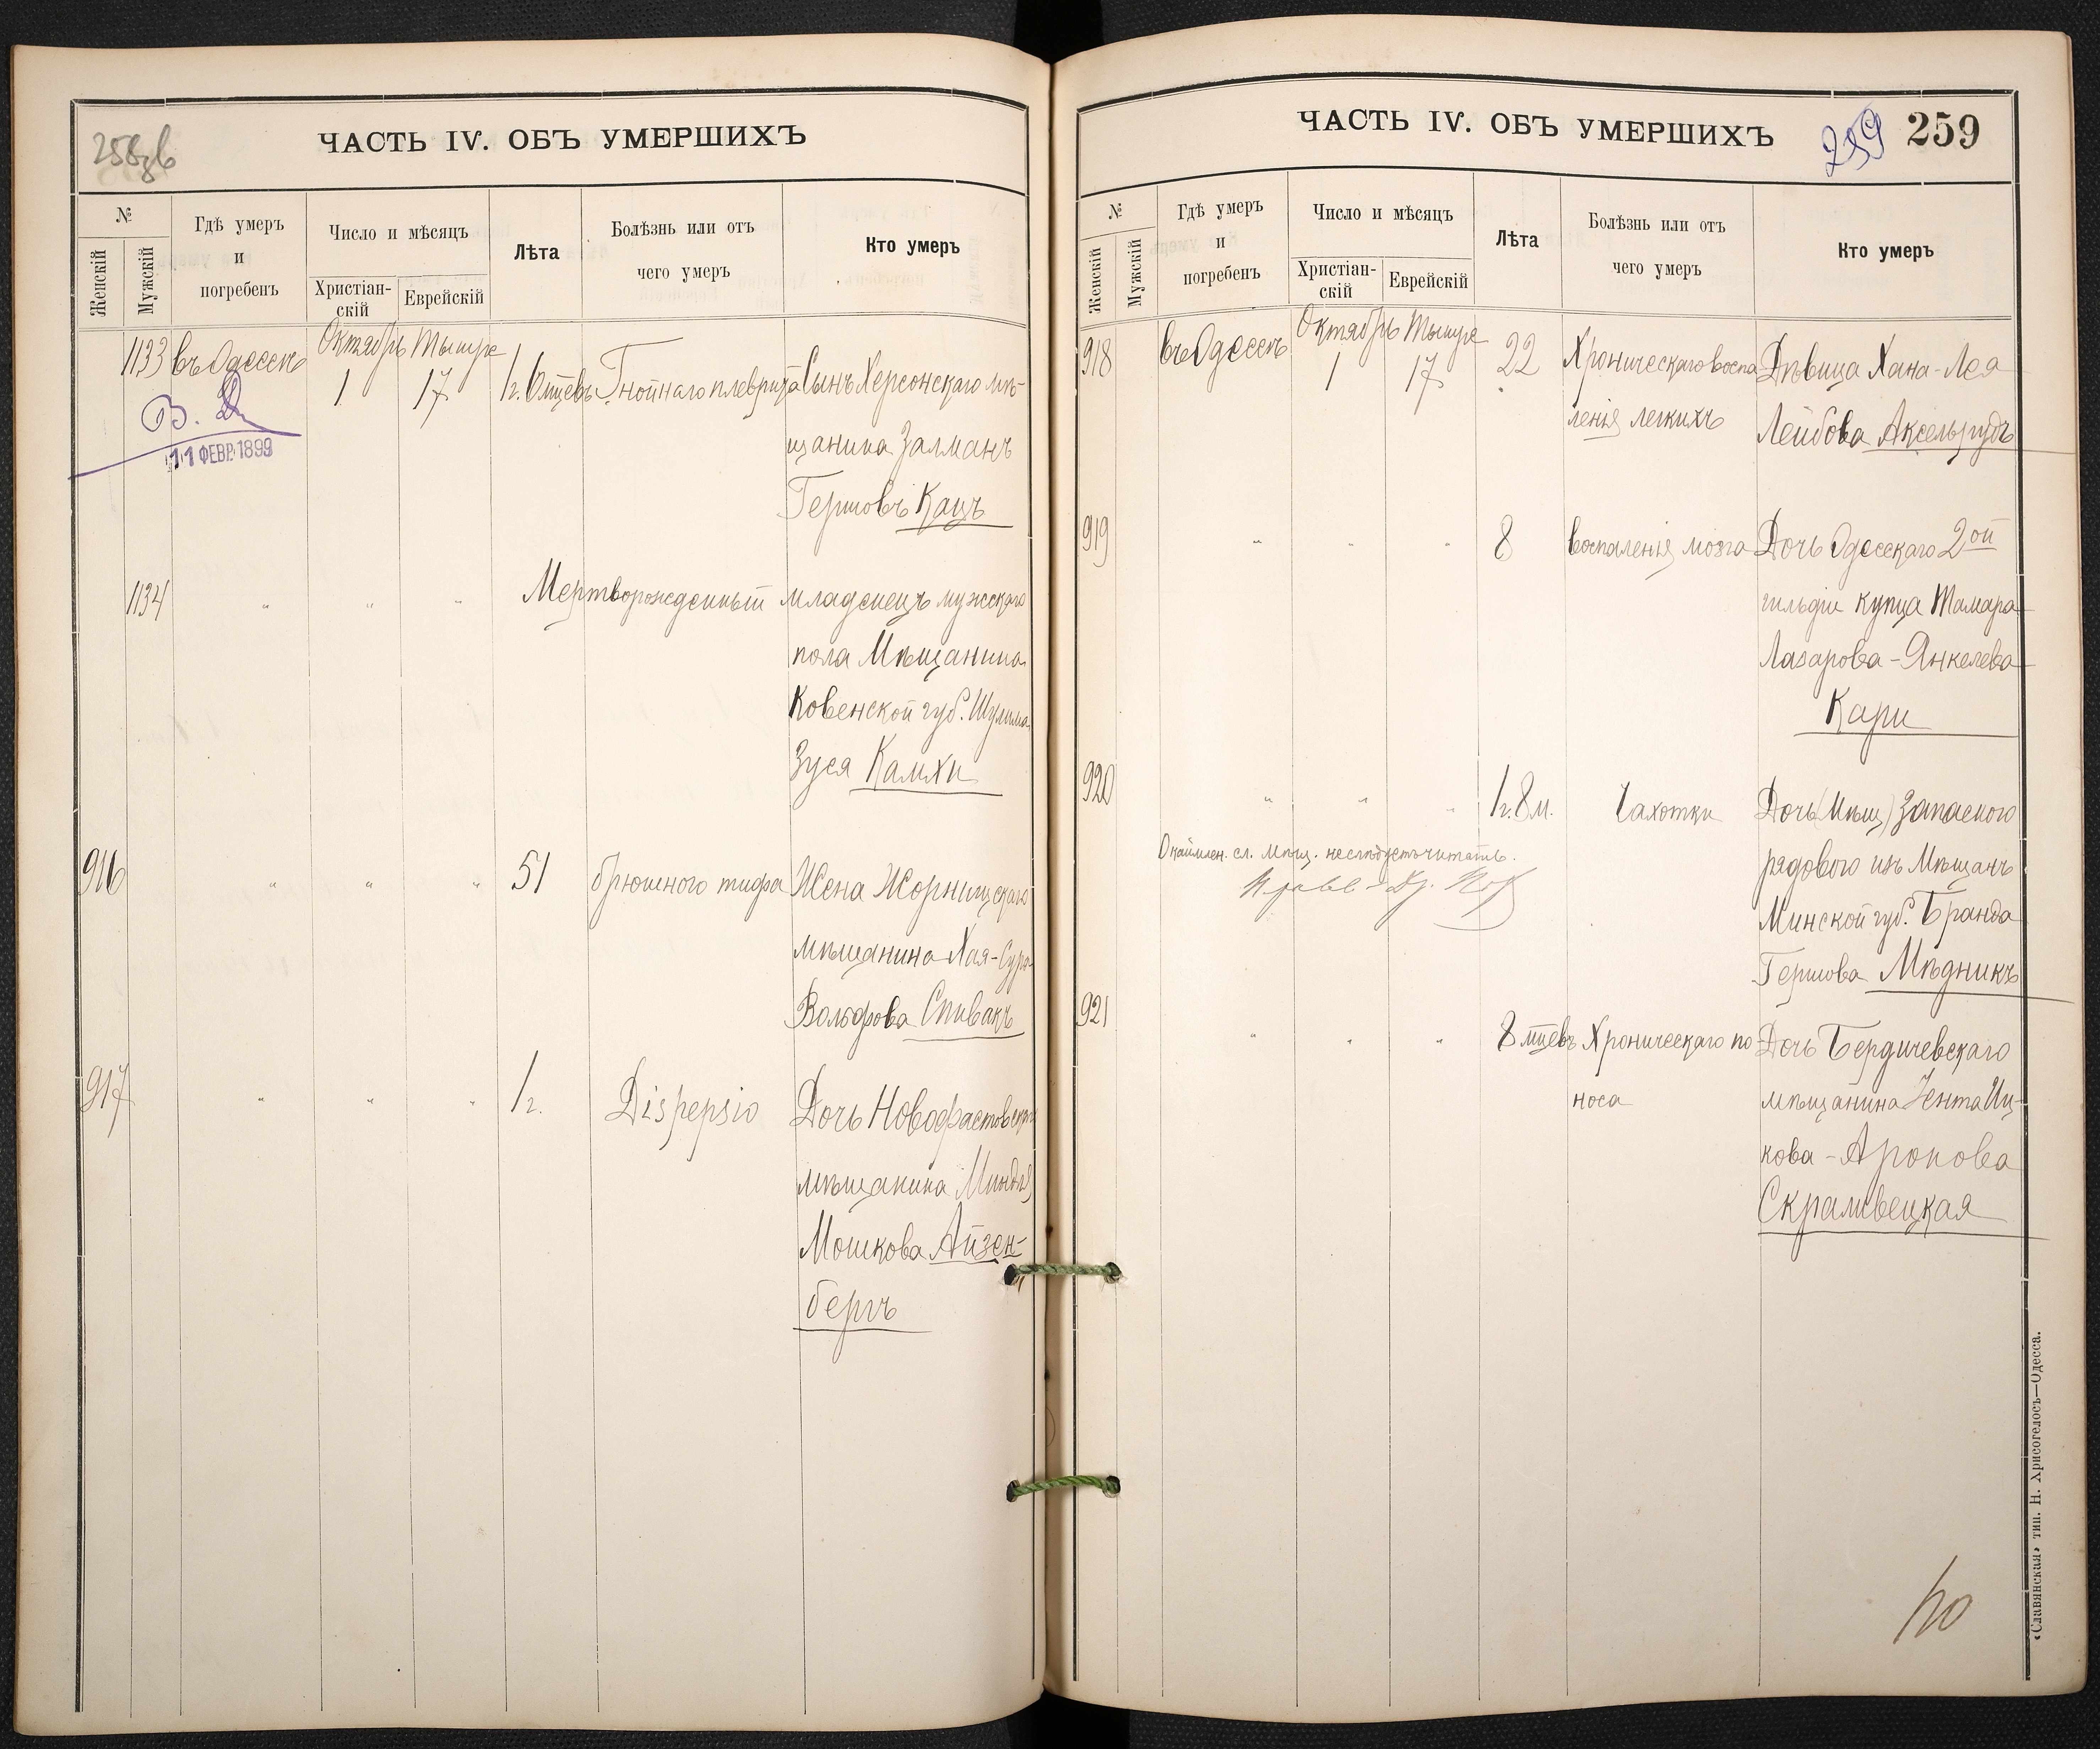 258об
ЧАСТЬ IV. ОБЪ УМЕРШИХЪ
№
Женскій
Мужскій
Гдѣ умеръ
и
погребенъ
Число и мѣсяцъ
Христіан-
скій
Еврейскій
Лѣта
Болѣзнь или отъ
чего умеръ
Кто умеръ
Октябрь Тышре
1133 въ Одессѣ 1 17 1 г. 6 мцевъ Гнойнаго плеврита Сынъ Херсонскаго мѣ-
щанина Залманъ
Гершовъ Кацъ
11 ФЕВР. 1899
1134 " " " Мертворожденный младенецъ мужскаго
пола Мѣщанина
Ковенской губ. Шулима
Зуся Камхи
916 " " " 51 брюшного тифа Жена Жорнищскаго
мѣщанина Хая-Сура
Вольфова Спивакъ
917 " " " 1 г. Dispepsio Дочь Новофастовскаго
мѣщанина Миндля
Мошкова Айзен-
бергъ
ЧАСТЬ IV. ОБЪ УМЕРШИХЪ
259 259
№
Женскій
Мужскій
Гдѣ умеръ
и
погребенъ
Число и мѣсяцъ
Христіан-
скій
Еврейскій
Лѣта
Болѣзнь или отъ
чего умеръ
Кто умеръ
Октябрь Тышре
918 въ Одессѣ 1 17 22 Хроническаго воспа- Дѣвица Хана-Лея
ленія легкихъ Лейбова Аксельрудъ
919 " " " 8 воспаленія мозга Дочь Одесскаго 2ой
гильдіи купца Тамара
Лазарова-Янкелева
Кари
920 " " " 1 г. 8 м. Чахотки Дочь (Мѣщ) Запасного
рядового изъ Мѣщанъ
Минской губ. Бранда
Гершова Мѣдникъ
Окаймлен. сл. Мѣщ. неслѣдуетъ читать.
921 " " " 8 мцевъ Хроническаго по- Дочь Бердичевскаго
носа мѣщанина Гента Иц-
кова-Аронова
Скрамвецкая
«Славянская» тип. Н. Хрисогелосъ—Одесса.